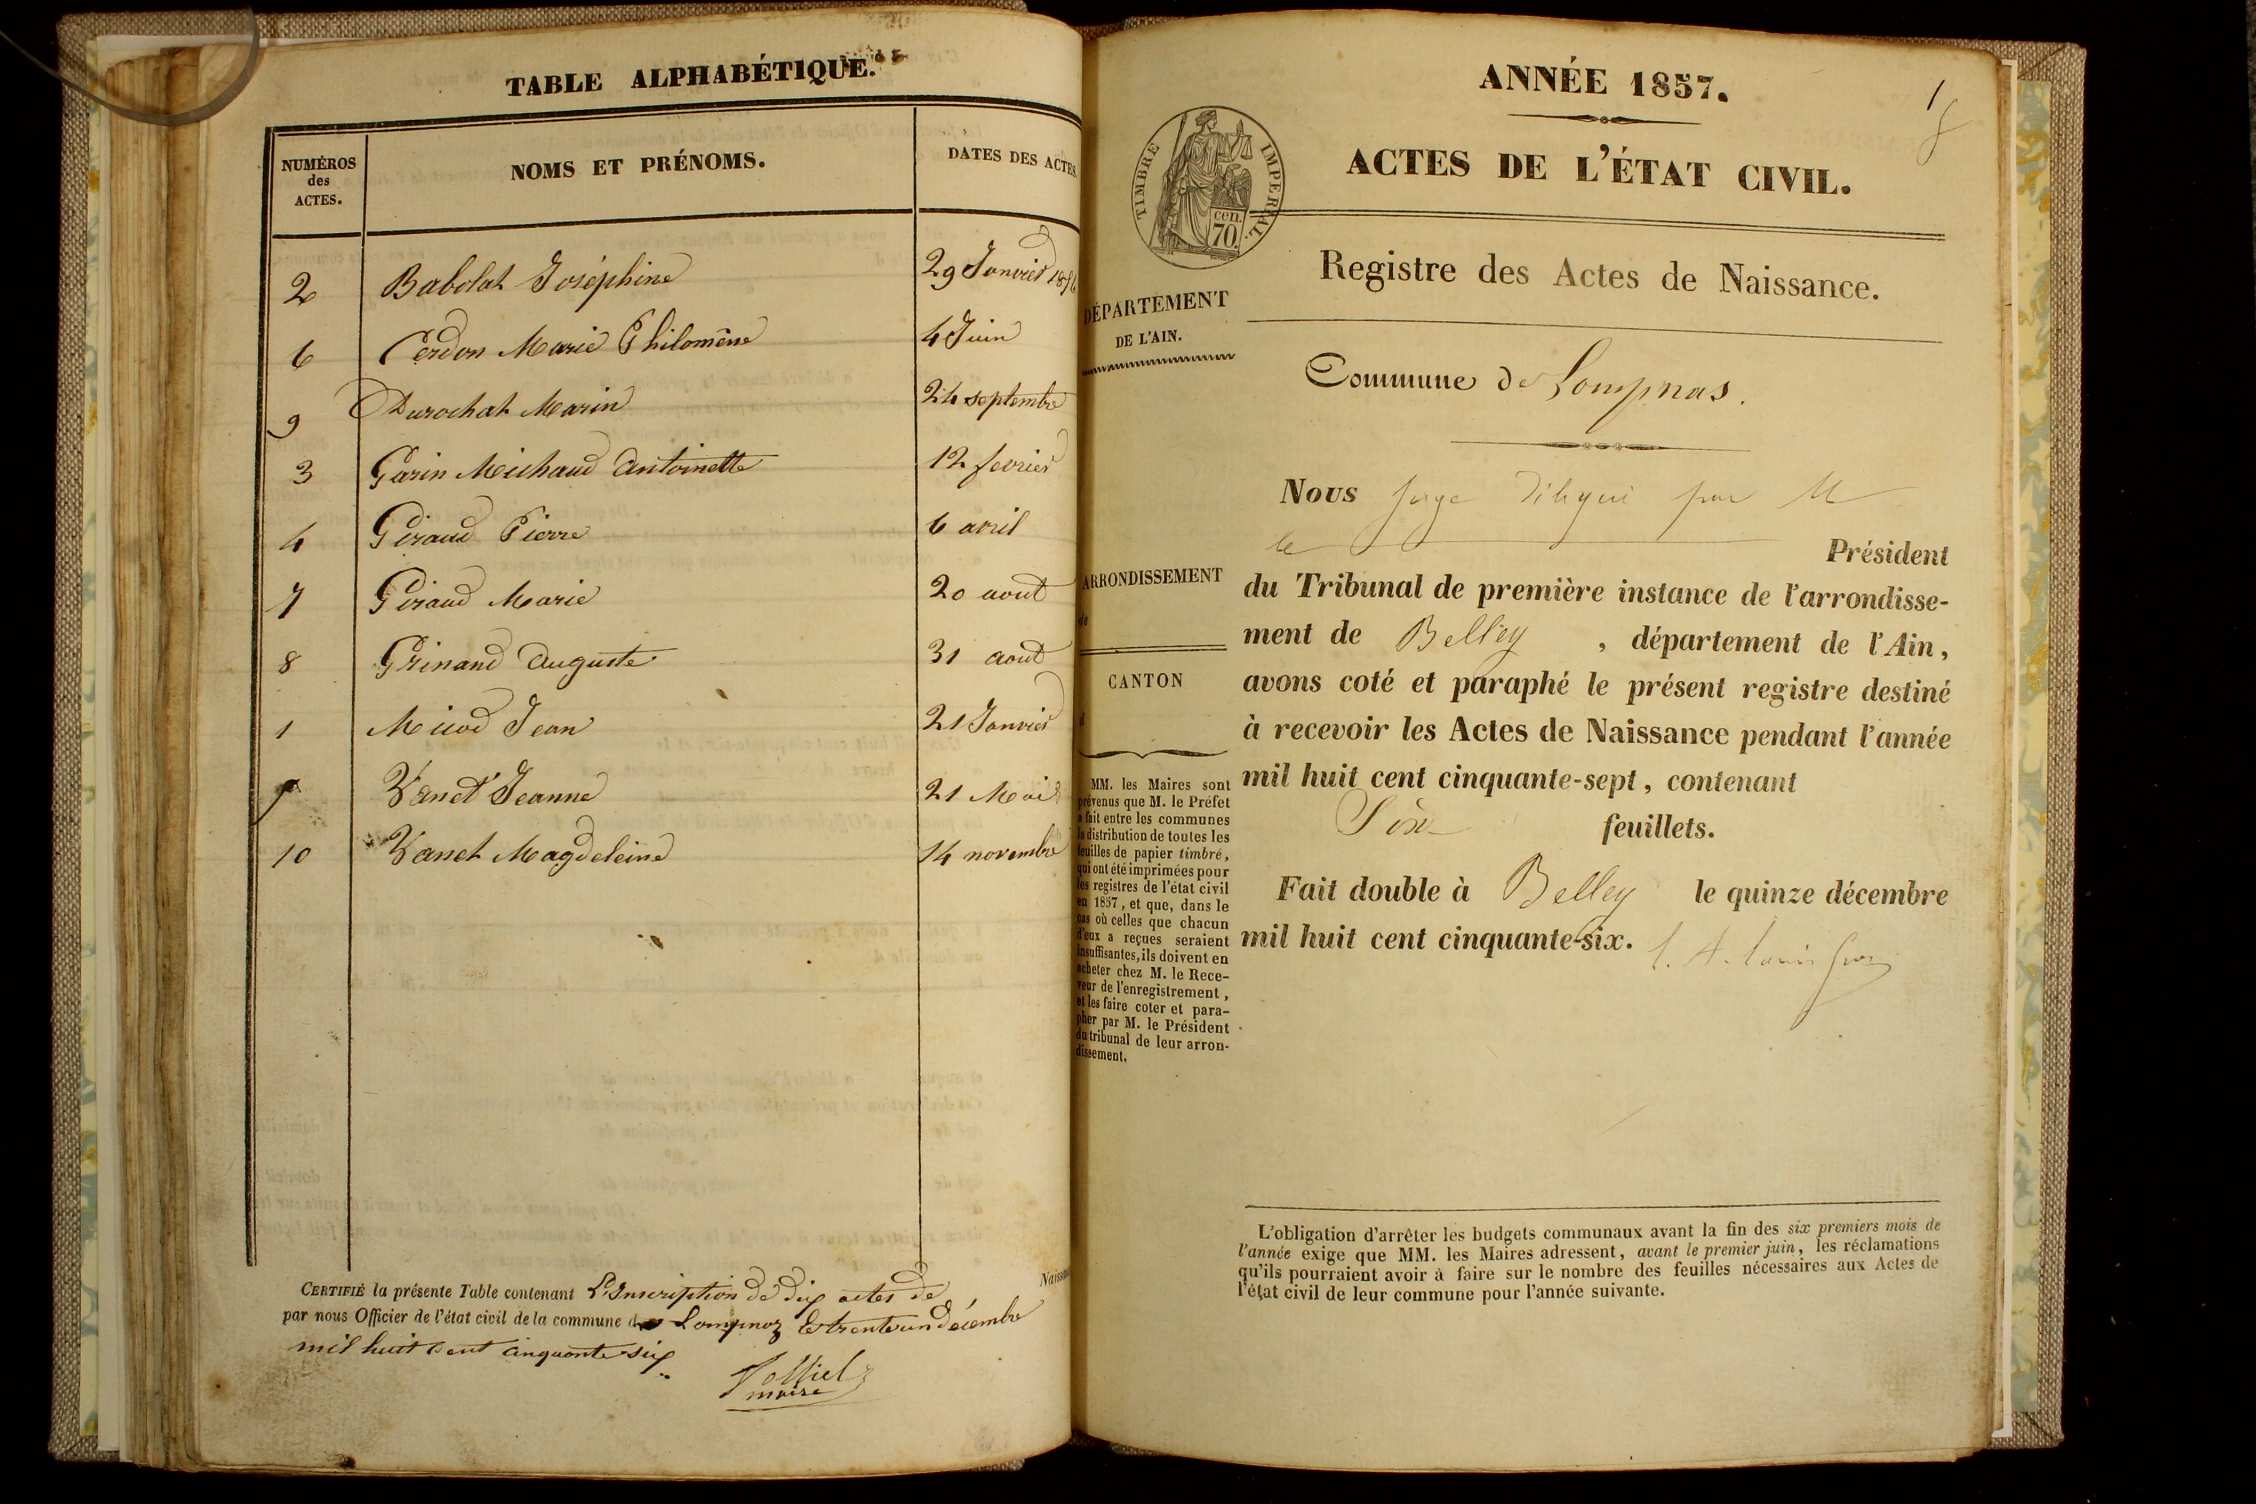 TABLE ALPHABÉTIQUE.
NUMÉROS des ACTES.
NOMS ET PRÉNOMS.
DATES DES ACTES
2 Babolat Joséphine 29 Janvier 1856
6 Cerdon Marie Philomène 4 Juin
9 Durochat Marin 24 septembre
3 Garin Michaud Antoinette 12 fevrier
4 Giraud Pierre 6 avril
7 Giraud Marie 20 aout
8 Grinand Auguste 31 aout
1 Micod Jean 21 Janvier
5 Vanet Jeanne 21 Mai
10 Vanet Magdeleine 14 novembre
CERTIFIÉ la présente Table contenant L'Inscription de dix actes de Naissan
par nous Officier de l'état civil de la commune de Lompnaz le trente un décembre
mil huit cent cinquante six
maire
ANNÉE 1857.
1
ACTES DE L'ÉTAT CIVIL.
TIMBRE IMPERIAL.
cen. 70.
Registre des Actes de Naissance.
DÉPARTEMENT
DE L'AIN.
Commune de Lompnas.
Nous Juge délégué par M
le Président
du Tribunal de première instance de l'arrondisse-
ment de Belley, département de l'Ain,
avons coté et paraphé le présent registre destiné
à recevoir les Actes de Naissance pendant l'année
mil huit cent cinquante-sept, contenant
Six feuillets.
Fait double à Belley le quinze décembre
mil huit cent cinquante-six.
ARRONDISSEMENT
de
CANTON
d
MM. les Maires sont
prévenus que M. le Préfet
a fait entre les communes
la distribution de toutes les
feuilles de papier timbré,
qui ont été imprimées pour
les registres de l'état civil
en 1857, et que, dans le
cas où celles que chacun
d'eux a reçues seraient
insuffisantes, ils doivent en
acheter chez M. le Rece-
veur de l'enregistrement,
et les faire coter et para-
pher par M. le Président
du tribunal de leur arron-
dissement.
L'obligation d'arrêter les budgets communaux avant la fin des six premiers mois de
l'année exige que MM. les Maires adressent, avant le premier juin, les réclamations
qu'ils pourraient avoir à faire sur le nombre des feuilles nécessaires aux Actes de
l'état civil de leur commune pour l'année suivante.